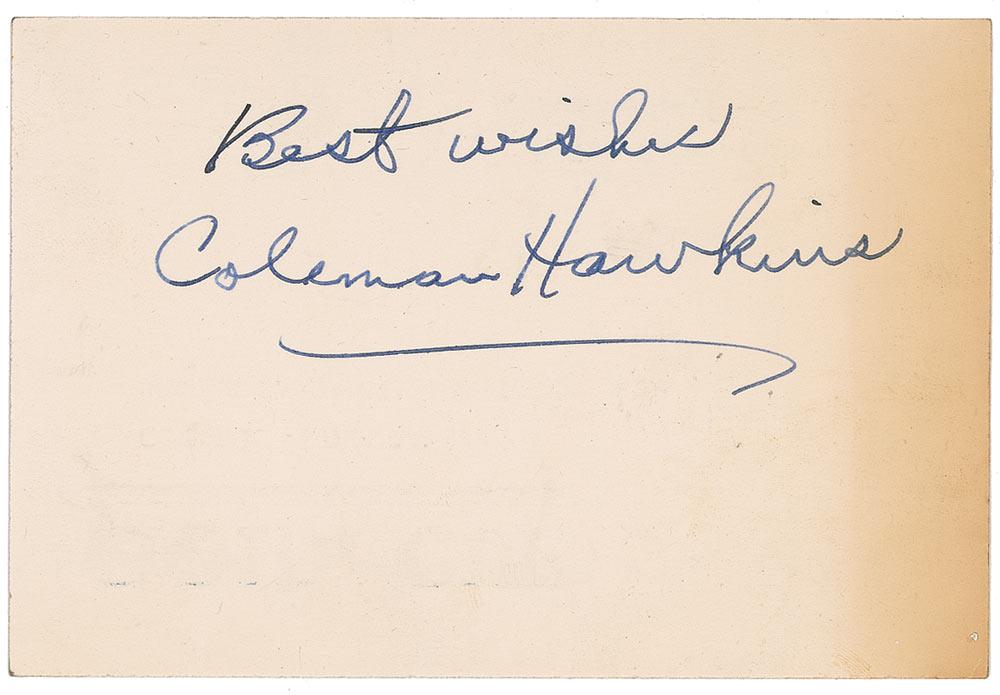 Best wishes
Coleman Hawkins